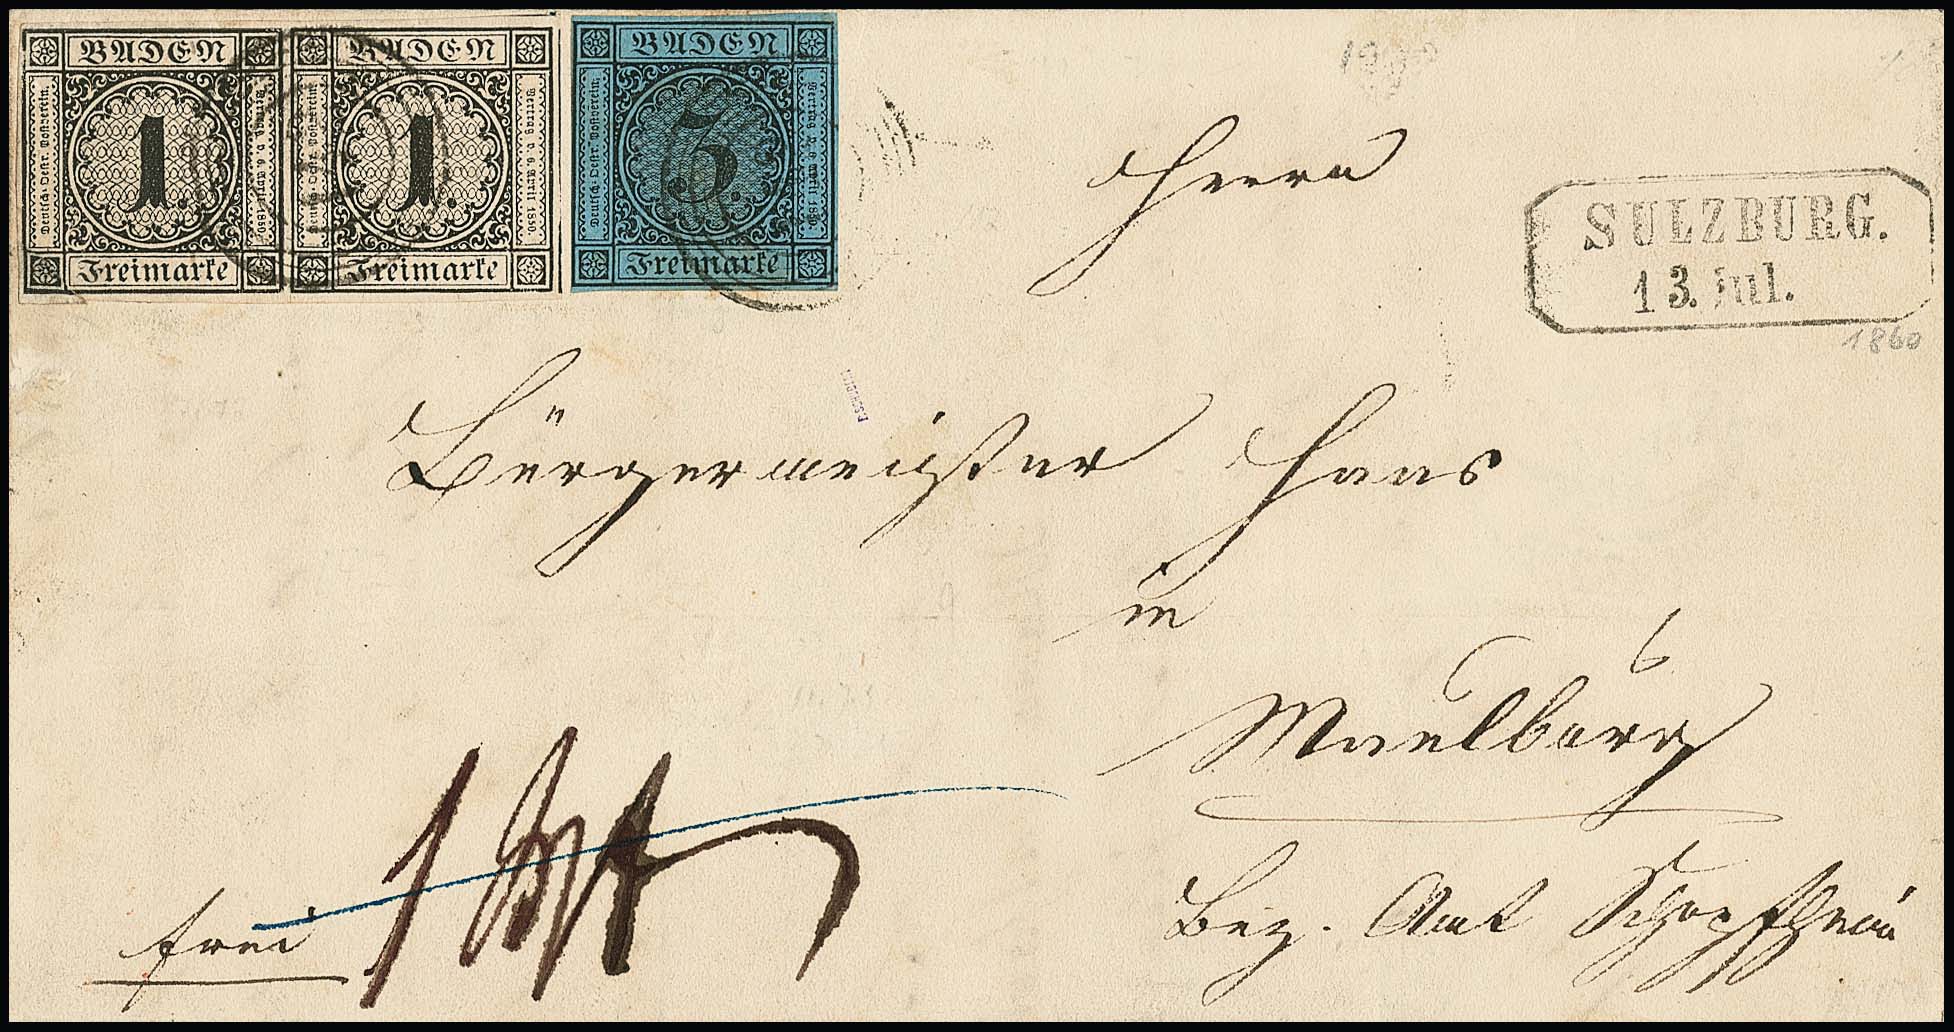 BADEN
Deutsch-Oestr. Postverein.
1.
Vertrag v. 6. April 1850
Freimarke
BADEN
Deutsch-Oestr. Postverein.
1.
Vertrag v. 6. April 1850.
Freimarke
BADEN
Deutsch-Oestr. Postverein.
3.
Vertrag v. 6. April 1850.
Freimarke
Herrn
SULZBURG.
13. Jul.
1860
Bürgermeister Haas
in
Maulburg
Bez. Amt Schopfheim
frei